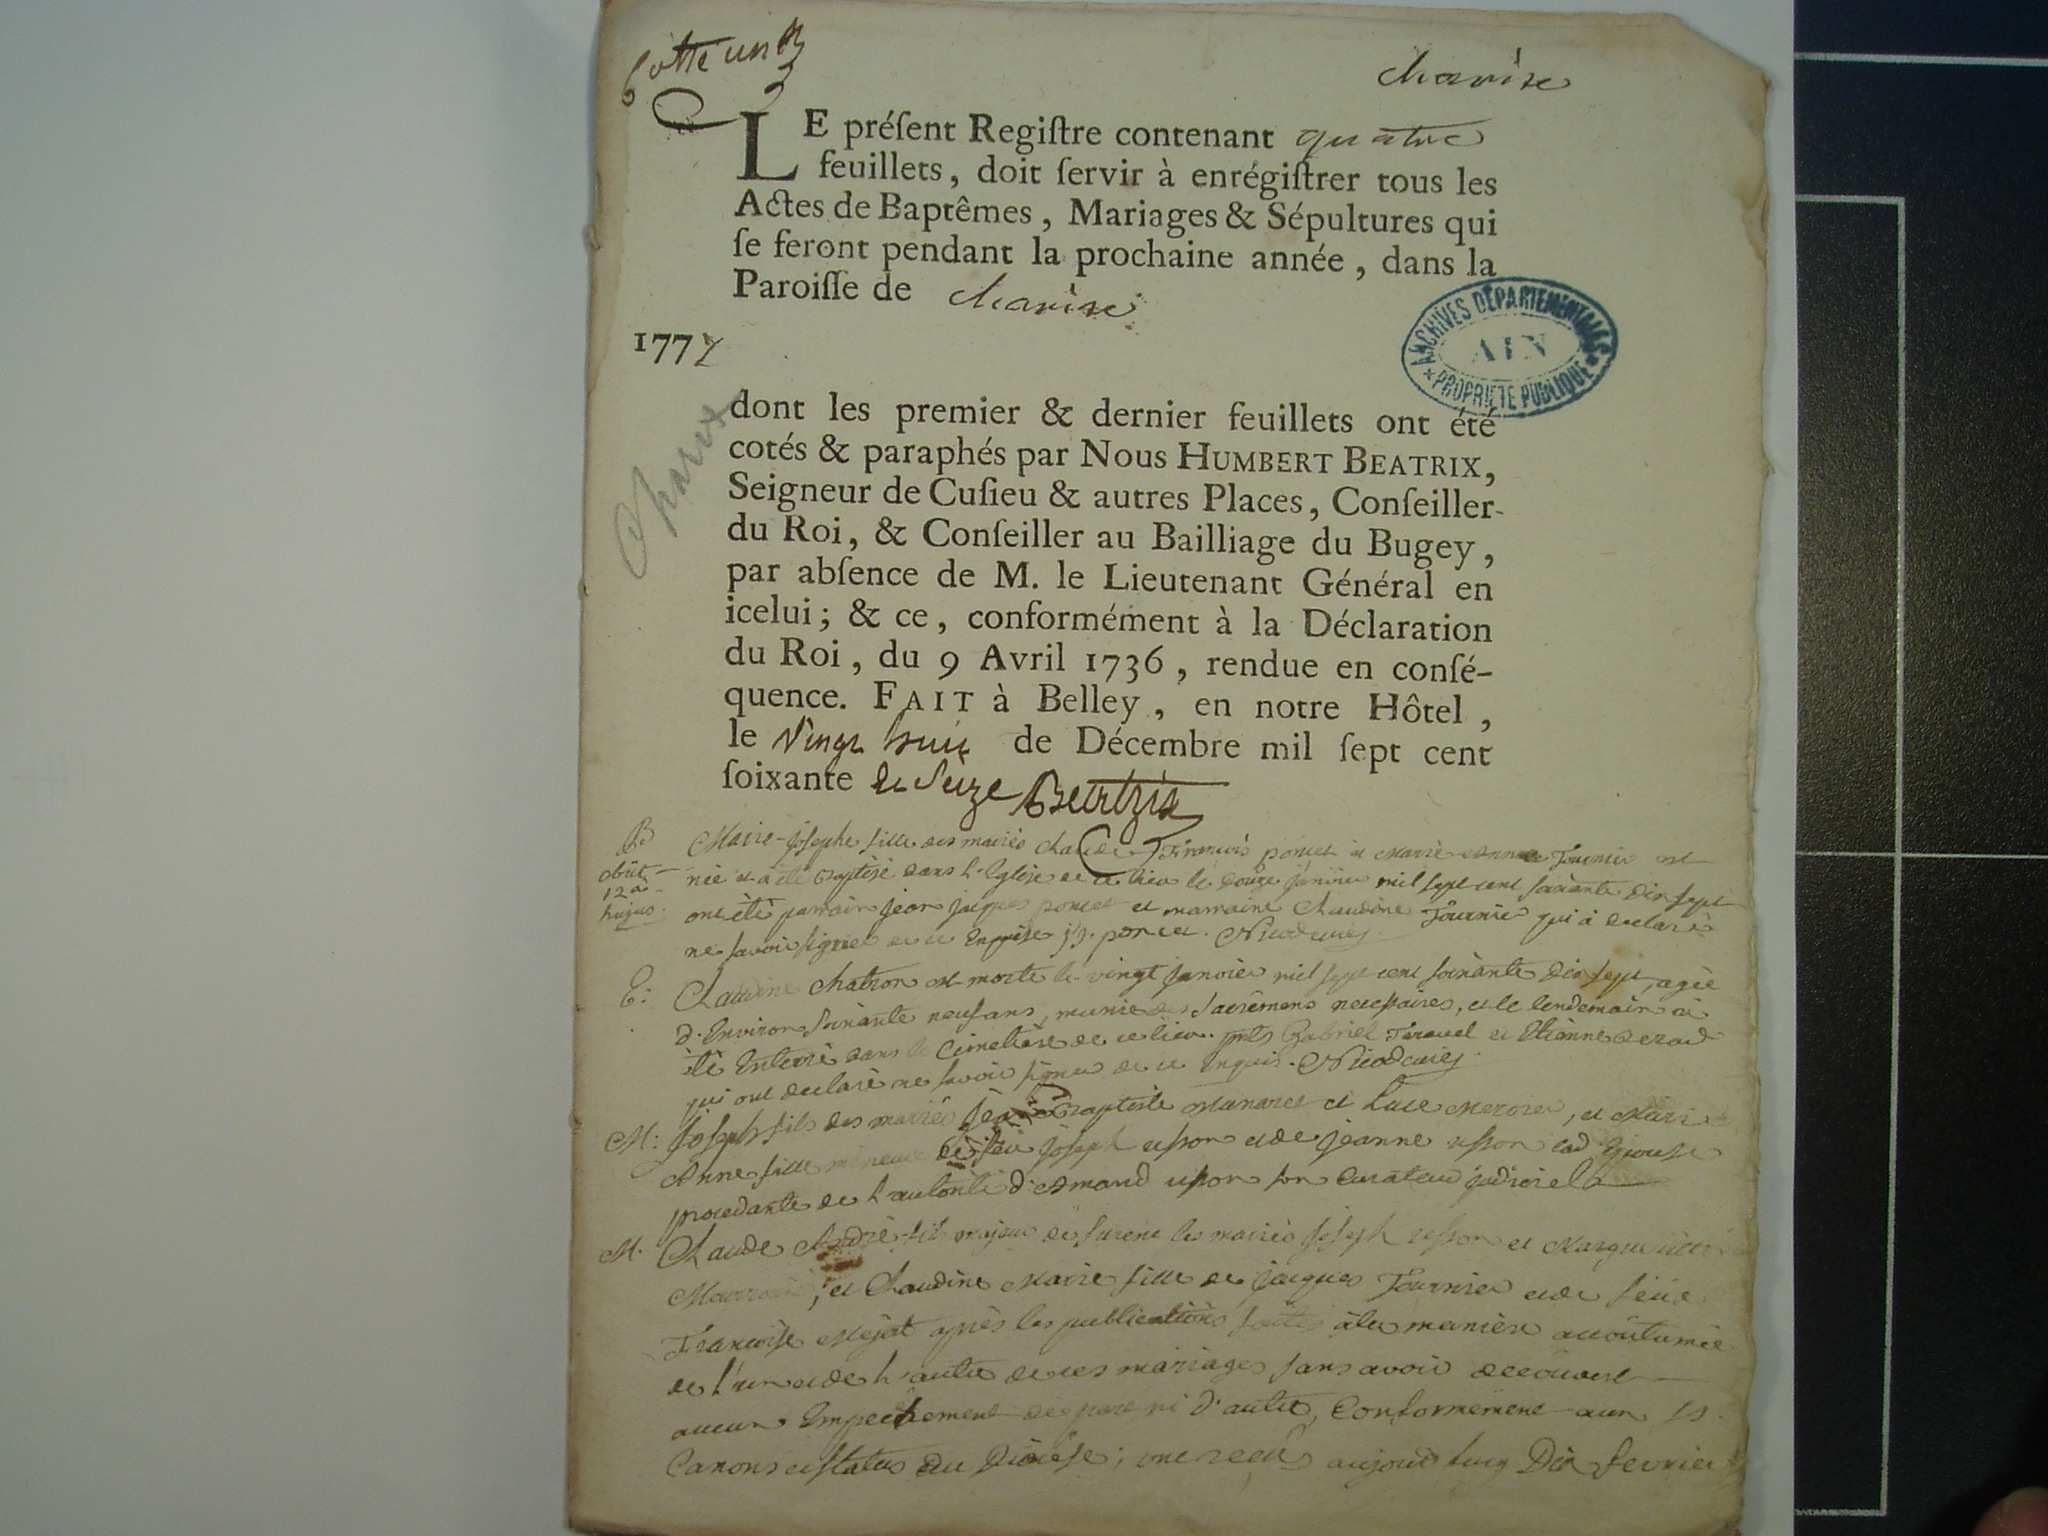 Cotte un
charix
LE préſent Regiſtre contenant quatre
feuillets, doit ſervir à enrégiſtrer tous les
Actes de Baptêmes, Mariages & Sépultures qui
ſe feront pendant la prochaine année, dans la
Paroiſſe de charix
1777
ARCHIVES DÉPARTEMENTALES
AIN
* PROPRIÉTÉ PUBLIQUE *
Charix
dont les premier & dernier feuillets ont été
cotés & paraphés par Nous HUMBERT BEATRIX,
Seigneur de Cuſieu & autres Places, Conſeiller
du Roi, & Conſeiller au Bailliage du Bugey,
par abſence de M. le Lieutenant Général en
icelui; & ce, conformément à la Déclaration
du Roi, du 9 Avril 1736, rendue en conſé-
quence. FAIT à Belley, en notre Hôtel,
le vingt huit de Décembre mil ſept cent
ſoixante et seize Beatrix
B. Marie-josephe fille des mariés claude françois poncet et Marie Anne fournier est
obiit
12a
hujus.
née et a été Baptisé dans l'Eglise de ce lieu le douze janvier mil sept cent soixante dix sept
ont été parrain jean jacques poncet et marraine Claudine fournier qui a declaré
ne savoir signer de ce Enquise j.j. poncet.
E: Claudine Chatron est morte le vingt janvier mil sept cent soixante dix sept, agée
d'Environ soixante neuf ans, munie des sacrêmens necessaires, et le lendemain a
été Enterré dans le Cimetière de ce lieu. pnts Gabriel et Etienne
qui ont declaré ne savoir signer de ce enquis.
M: Joseph fils des mariés jean Baptiste et Luce Mercier, et Marie
Anne fille mineure de feu joseph et de jeanne lad. Epouse
procedante de l'autorité d' son Curateur judiciel
M. Claude André fils majeur de furent les mariés joseph et Marguerite
et Claudine Marie fille de jacques fournier et de feüe
françoise après les publications faites à la maniere accoûtumée
de l'un et de l'autre de ces mariages sans avoir decouvert
aucun Empechement de part ni d'autre, Conformément aux Sts
Canons et statuts du Diocèse; ont reçû aujourd'huy Dix fevrier